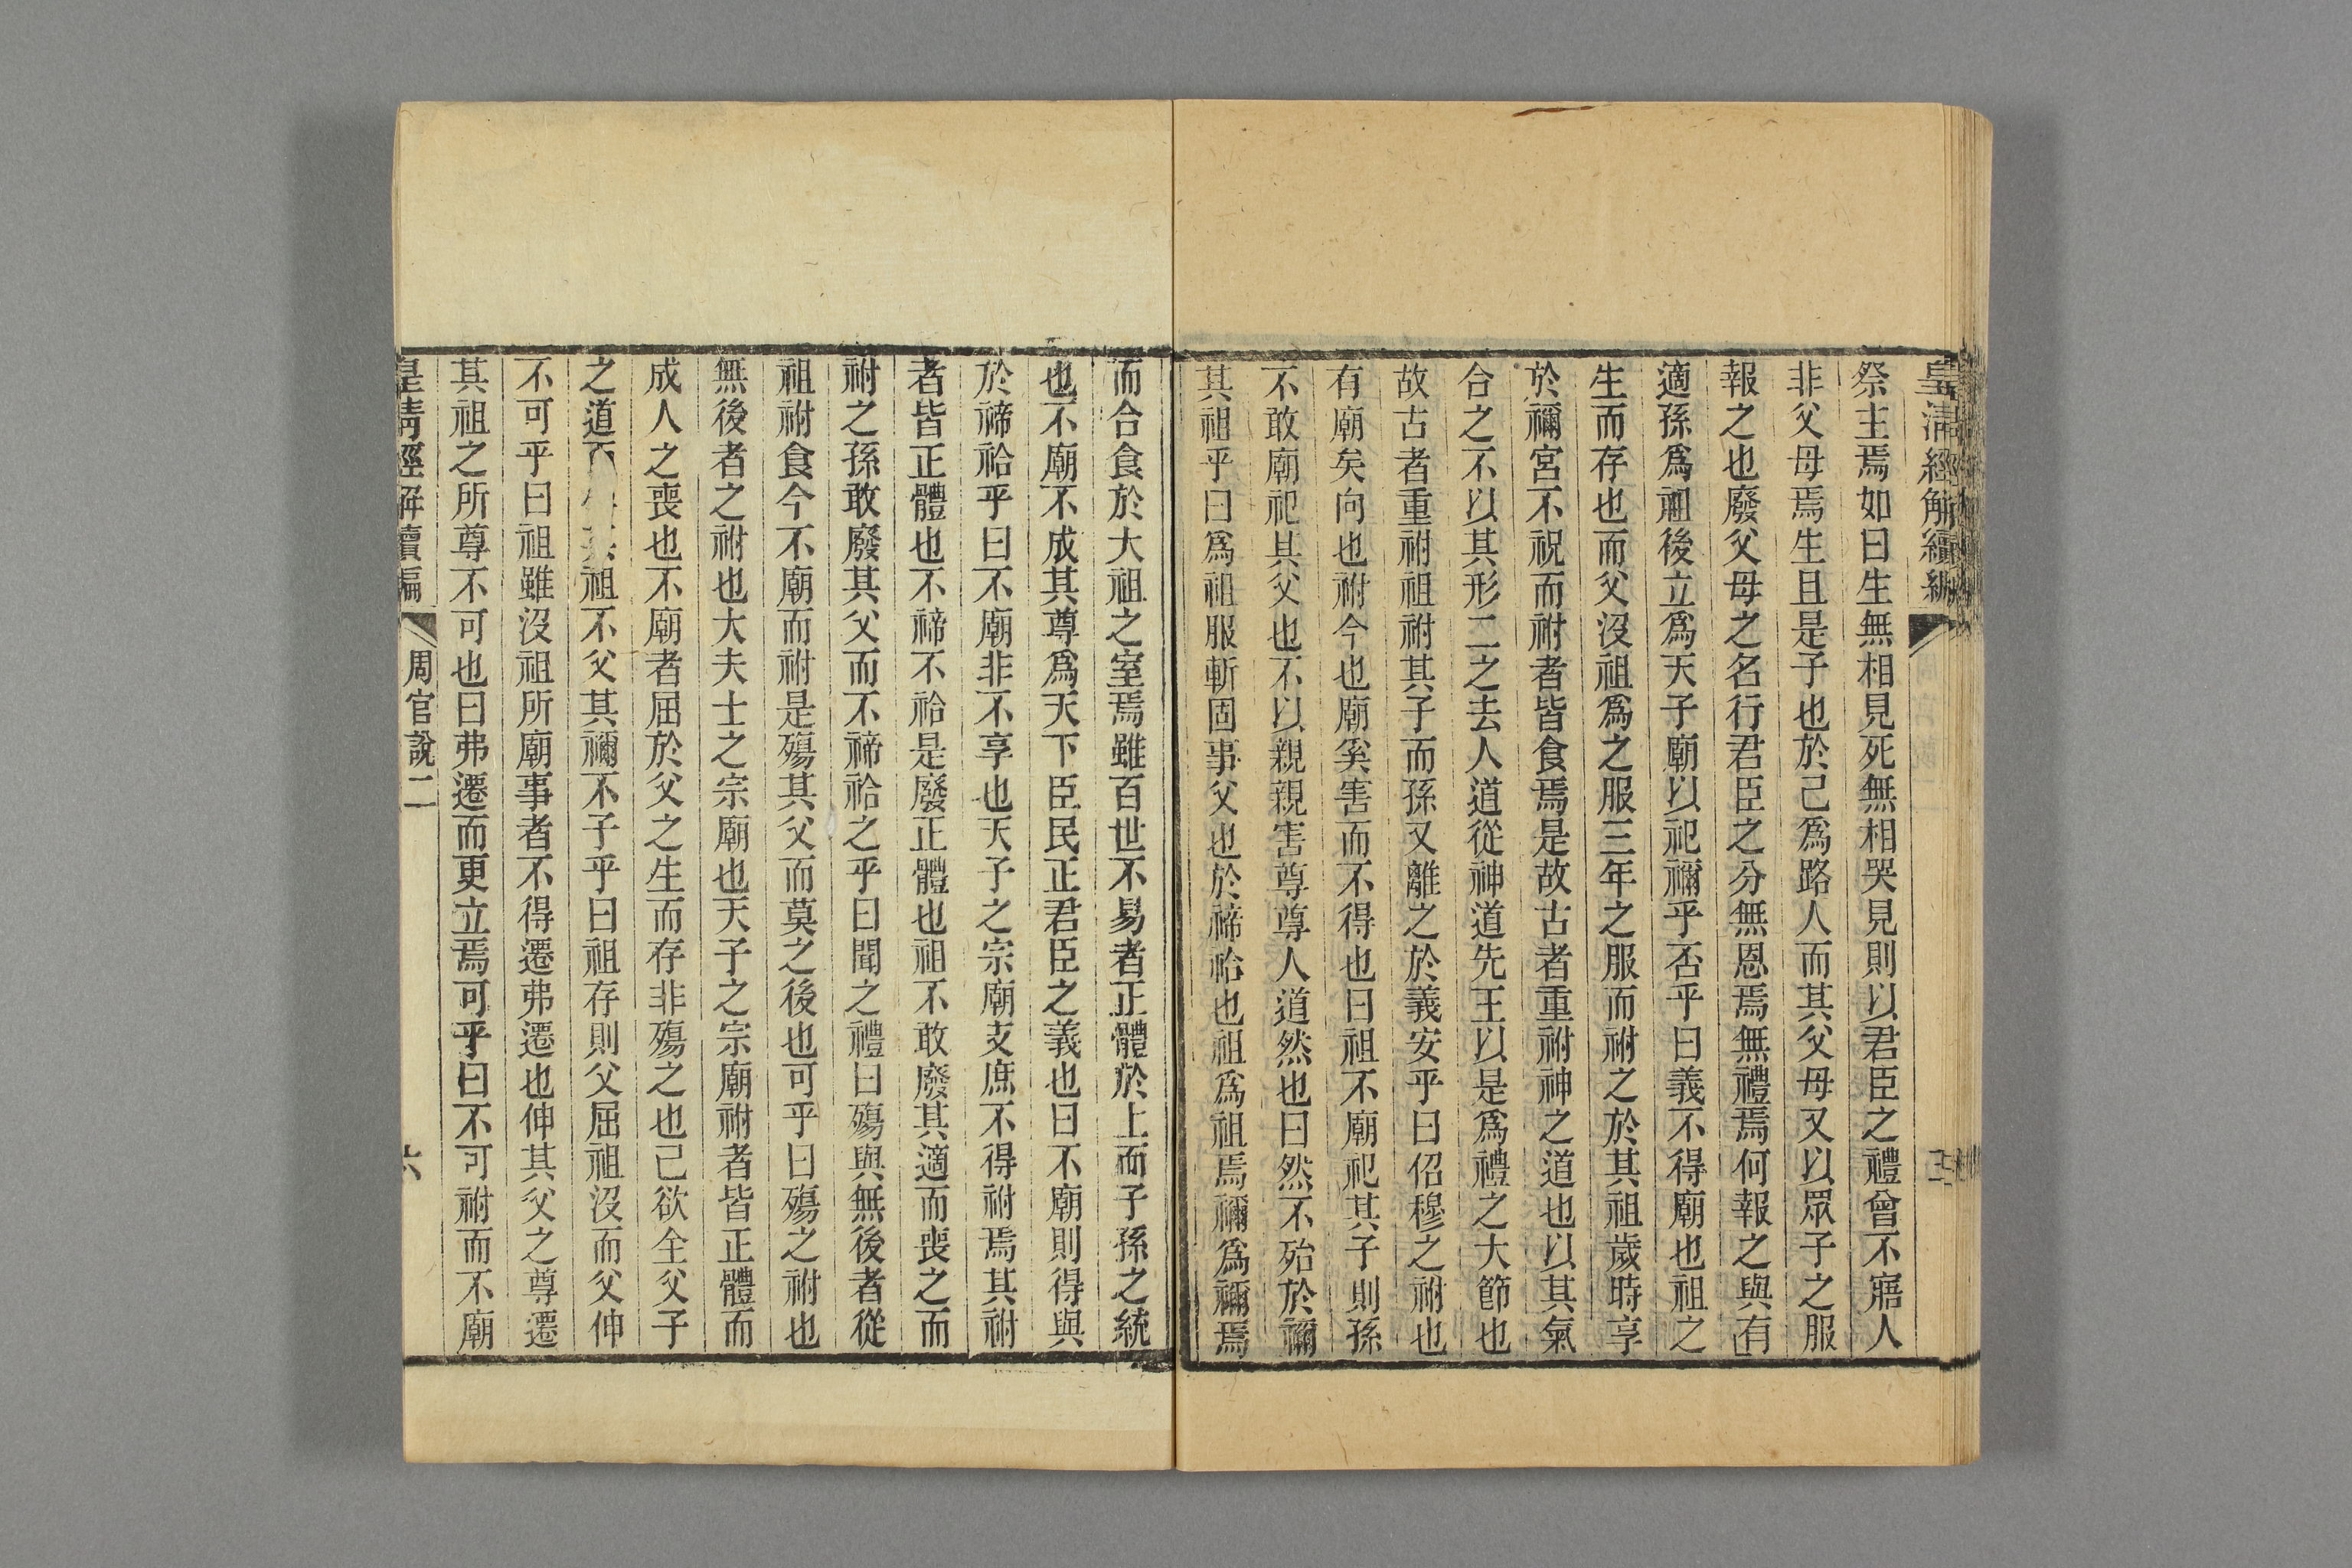 皇清經解續編
祭主焉如曰生無相見死無相哭見則以君臣之禮曾不寤人
非父母焉生且是子也於己爲路人而其父母又以眾子之服
報之也廢父母之名行君臣之分無恩焉無禮焉何報之與有
適孫爲祖後立爲天子廟以祀禰乎否乎曰義不得廟也祖之
生而存也而父沒祖爲之服三年之服而祔之於其祖歲時享
於禰宮不祝而祔者皆食焉是故古者重祔神之道也以其氣
合之不以其形二之去人道從神道先王以是爲禮之大節也
故古者重祔祖祔其子而孫又離之於義安乎曰佋穆之祔也
有廟矣向也祔今也廟奚害而不得也曰祖不廟祀其子則孫
不敢廟祀其父也不以親親害尊尊人道然也曰然不殆於禰
其祖乎曰爲祖服斬固事父也於禘祫也祖爲祖焉禰爲禰焉
而合食於大祖之室焉雖百世不易者正體於上而子孫之統
也不廟不成其尊爲天下臣民正君臣之義也曰不廟則得與
於禘祫乎曰不廟非不享也天子之宗廟支庶不得祔焉其祔
者皆正體也不禘不祫是廢正體也祖不敢廢其適而喪之而
祔之孫敢廢其父而不禘祫之乎曰聞之禮曰殤與無後者從
祖祔食今不廟而祔是殤其父而莫之後也可乎曰殤之祔也
無後者之祔也大夫士之宗廟也天子之宗廟祔者皆正體而
成人之喪也不廟者屈於父之生而存非殤之也己欲全父子
之道而其祖不父其禰不子乎曰祖存則父屈祖沒而父伸
不可乎曰祖雖沒祖所廟事者不得遷弗遷也伸其父之尊遷
其祖之所尊不可也曰弗遷而更立焉可乎曰不可祔而不廟
皇清經解續編
周官說二
六